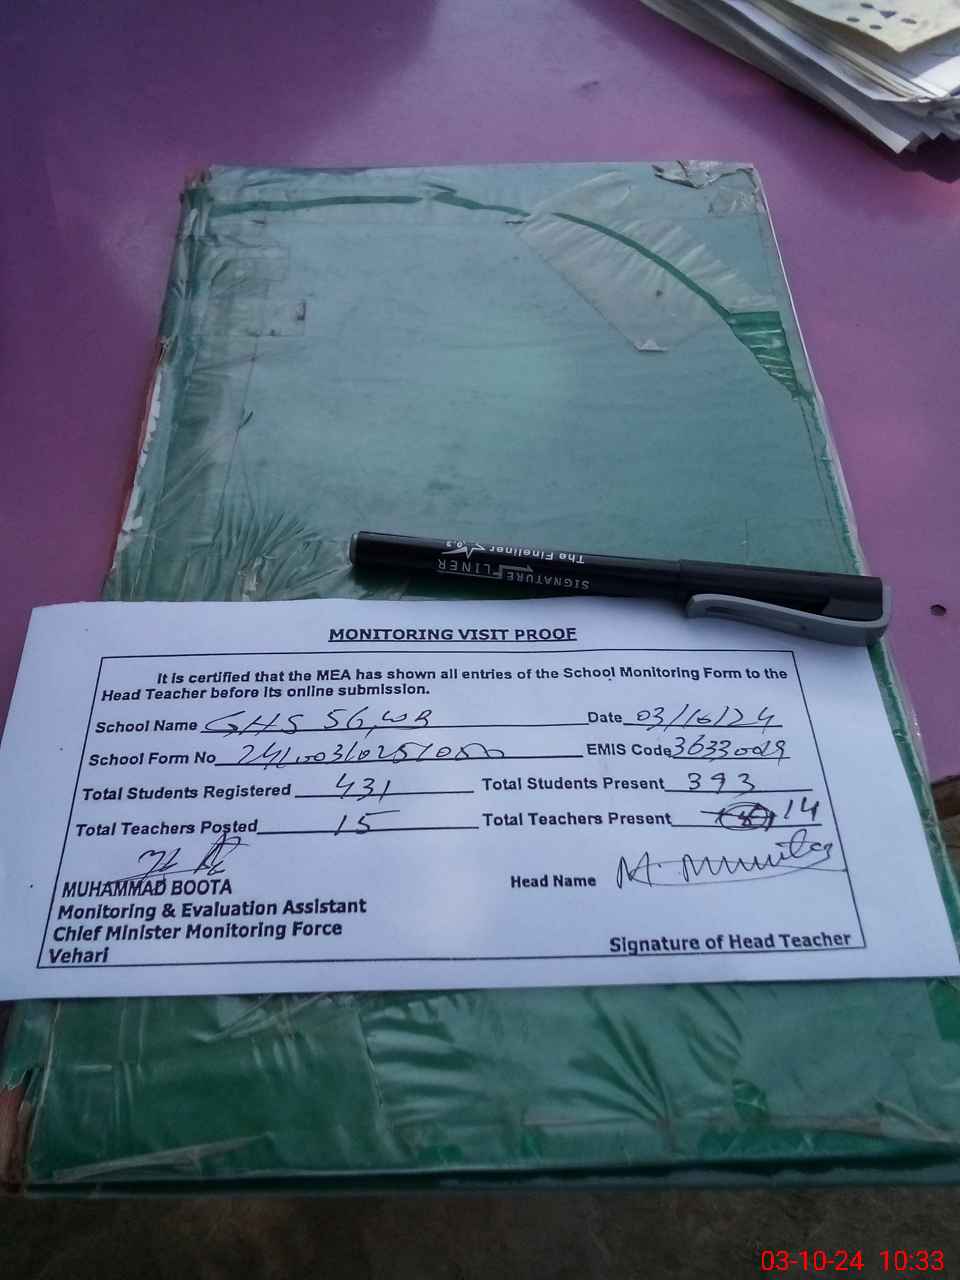 The Fineliner 0.3
SIGNATURE LINER
MONITORING VISIT PROOF
It is certified that the MEA has shown all entries of the School Monitoring Form to the
Head Teacher before its online submission.
School Name GHS 56, WB Date 03/10/24
School Form No EMIS Code
Total Students Registered 431 Total Students Present 393
Total Teachers Posted 15 Total Teachers Present 14
MUHAMMAD BOOTA
Head Name M. Mumtaz
Monitoring & Evaluation Assistant
Chief Minister Monitoring Force
Vehari Signature of Head Teacher
03-10-24 10:33